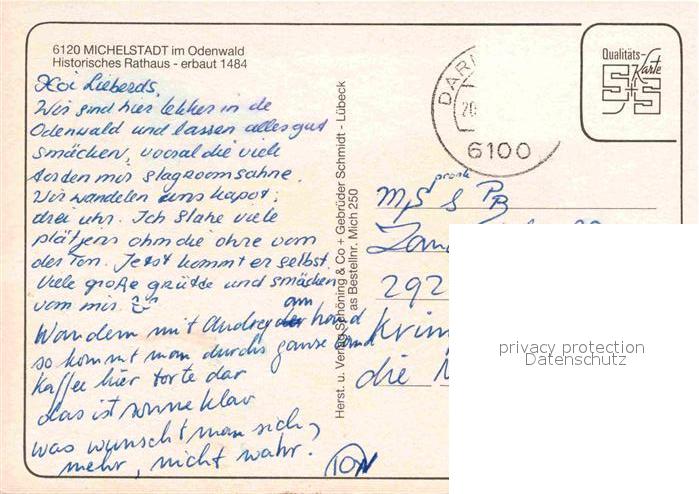 6120 MICHELSTADT im Odenwald
Historisches Rathaus - erbaut 1484
Hoi Lieberds,
Wir sind hier lekker in de
Odenwald und lassen alles gut
smäcken, vooral die viele
torden mir slagroomsahne.
Wir wandelen uns kapot;
drei uhr. Ich slahe viele
plätjens ohm die ohre vom
des Ton. Jetst kommt er selbst.
Viele große grütze und smäcken
vom mir.
Wandern mit Audrey am hand
so kommt man durchs ganse land
Kaffee hier torte dar
das ist sonne klar
was wunscht man sich
mehr, nicht wahr?
TON
Herst. u. Verlag Schöning & Co + Gebrüder Schmidt - Lübeck
as Bestellnr. Mich 250
Qualitäts-
Karte
S+S
DAR
20
6100
292
Krim
die
privacy protection
Datenschutz